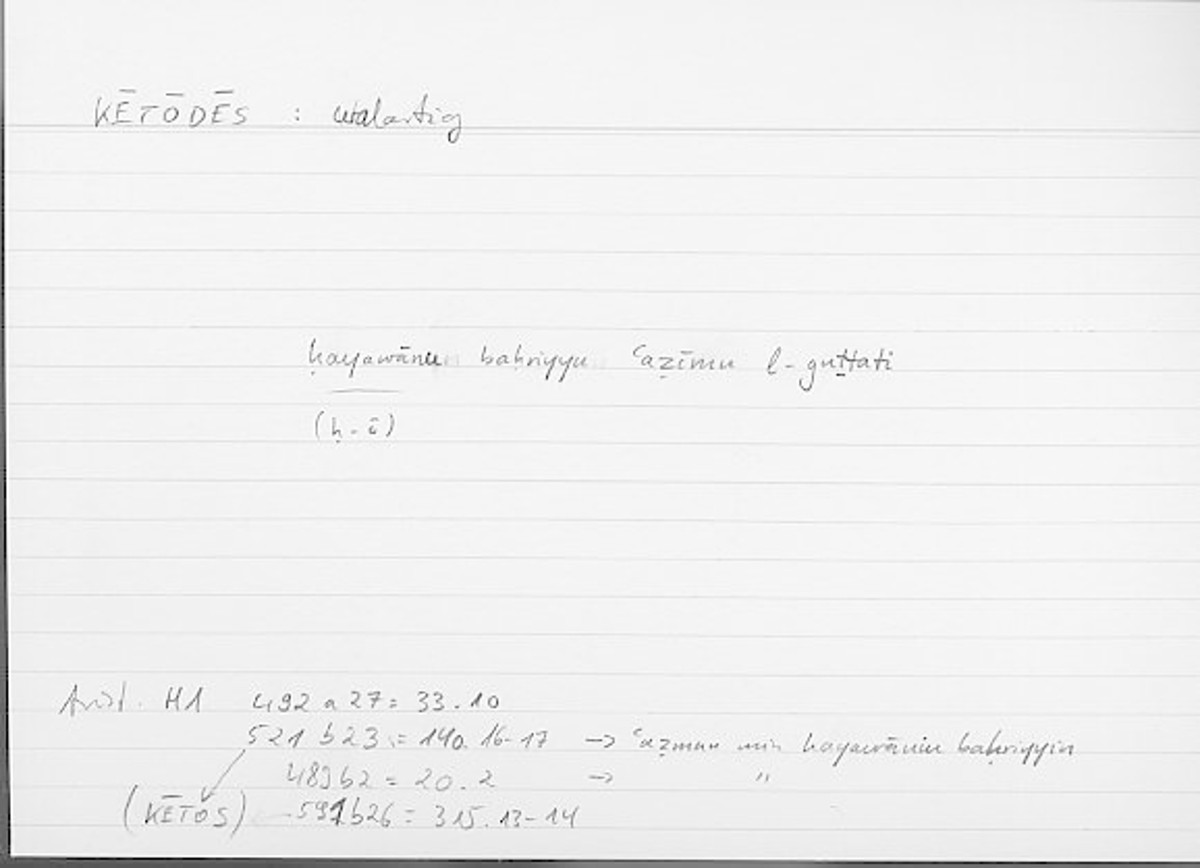 KĒTŌDĒS : walartig
ḥayawānu baḥriyyu ʿaẓīmu l-ǧuṯṯati
(ḥ-ī)
Arist. HA 492 a 27 = 33.10
521 b23 = 140.16-17 → ʿaẓmun min ḥayawānin baḥriyyin
489b2 = 20.2 → "
(KĒTOS) 591b26 = 315.13-14